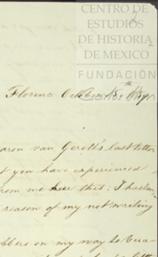 CENTRO DE
ESTUDIOS
DE HISTORIA
DE MEXICO
FUNDACIÓN
Florence October 18th
aron van Gerolt's last letter
t you have experienced
rom me
reason of my not writing
on my way to